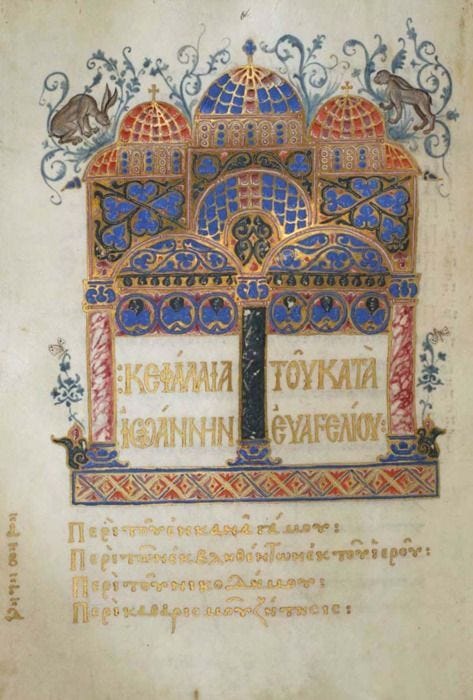 :ΚΕΦΑΛΑΙΑ ΤΟῦ ΚΑΤᾺ
ἸΩΆΝΝΗΝ ΕΥΑΓΕΛΊΟΥ:
Περὶ τοῦ ἐν κανᾶ γάμου:
Περὶ τῶν ἐκβληθέντων ἐκ τοῦ ἱεροῦ:
Περὶ τοῦ νικοδήμου:
Περὶ καθαρισμοῦ ζήτησις: